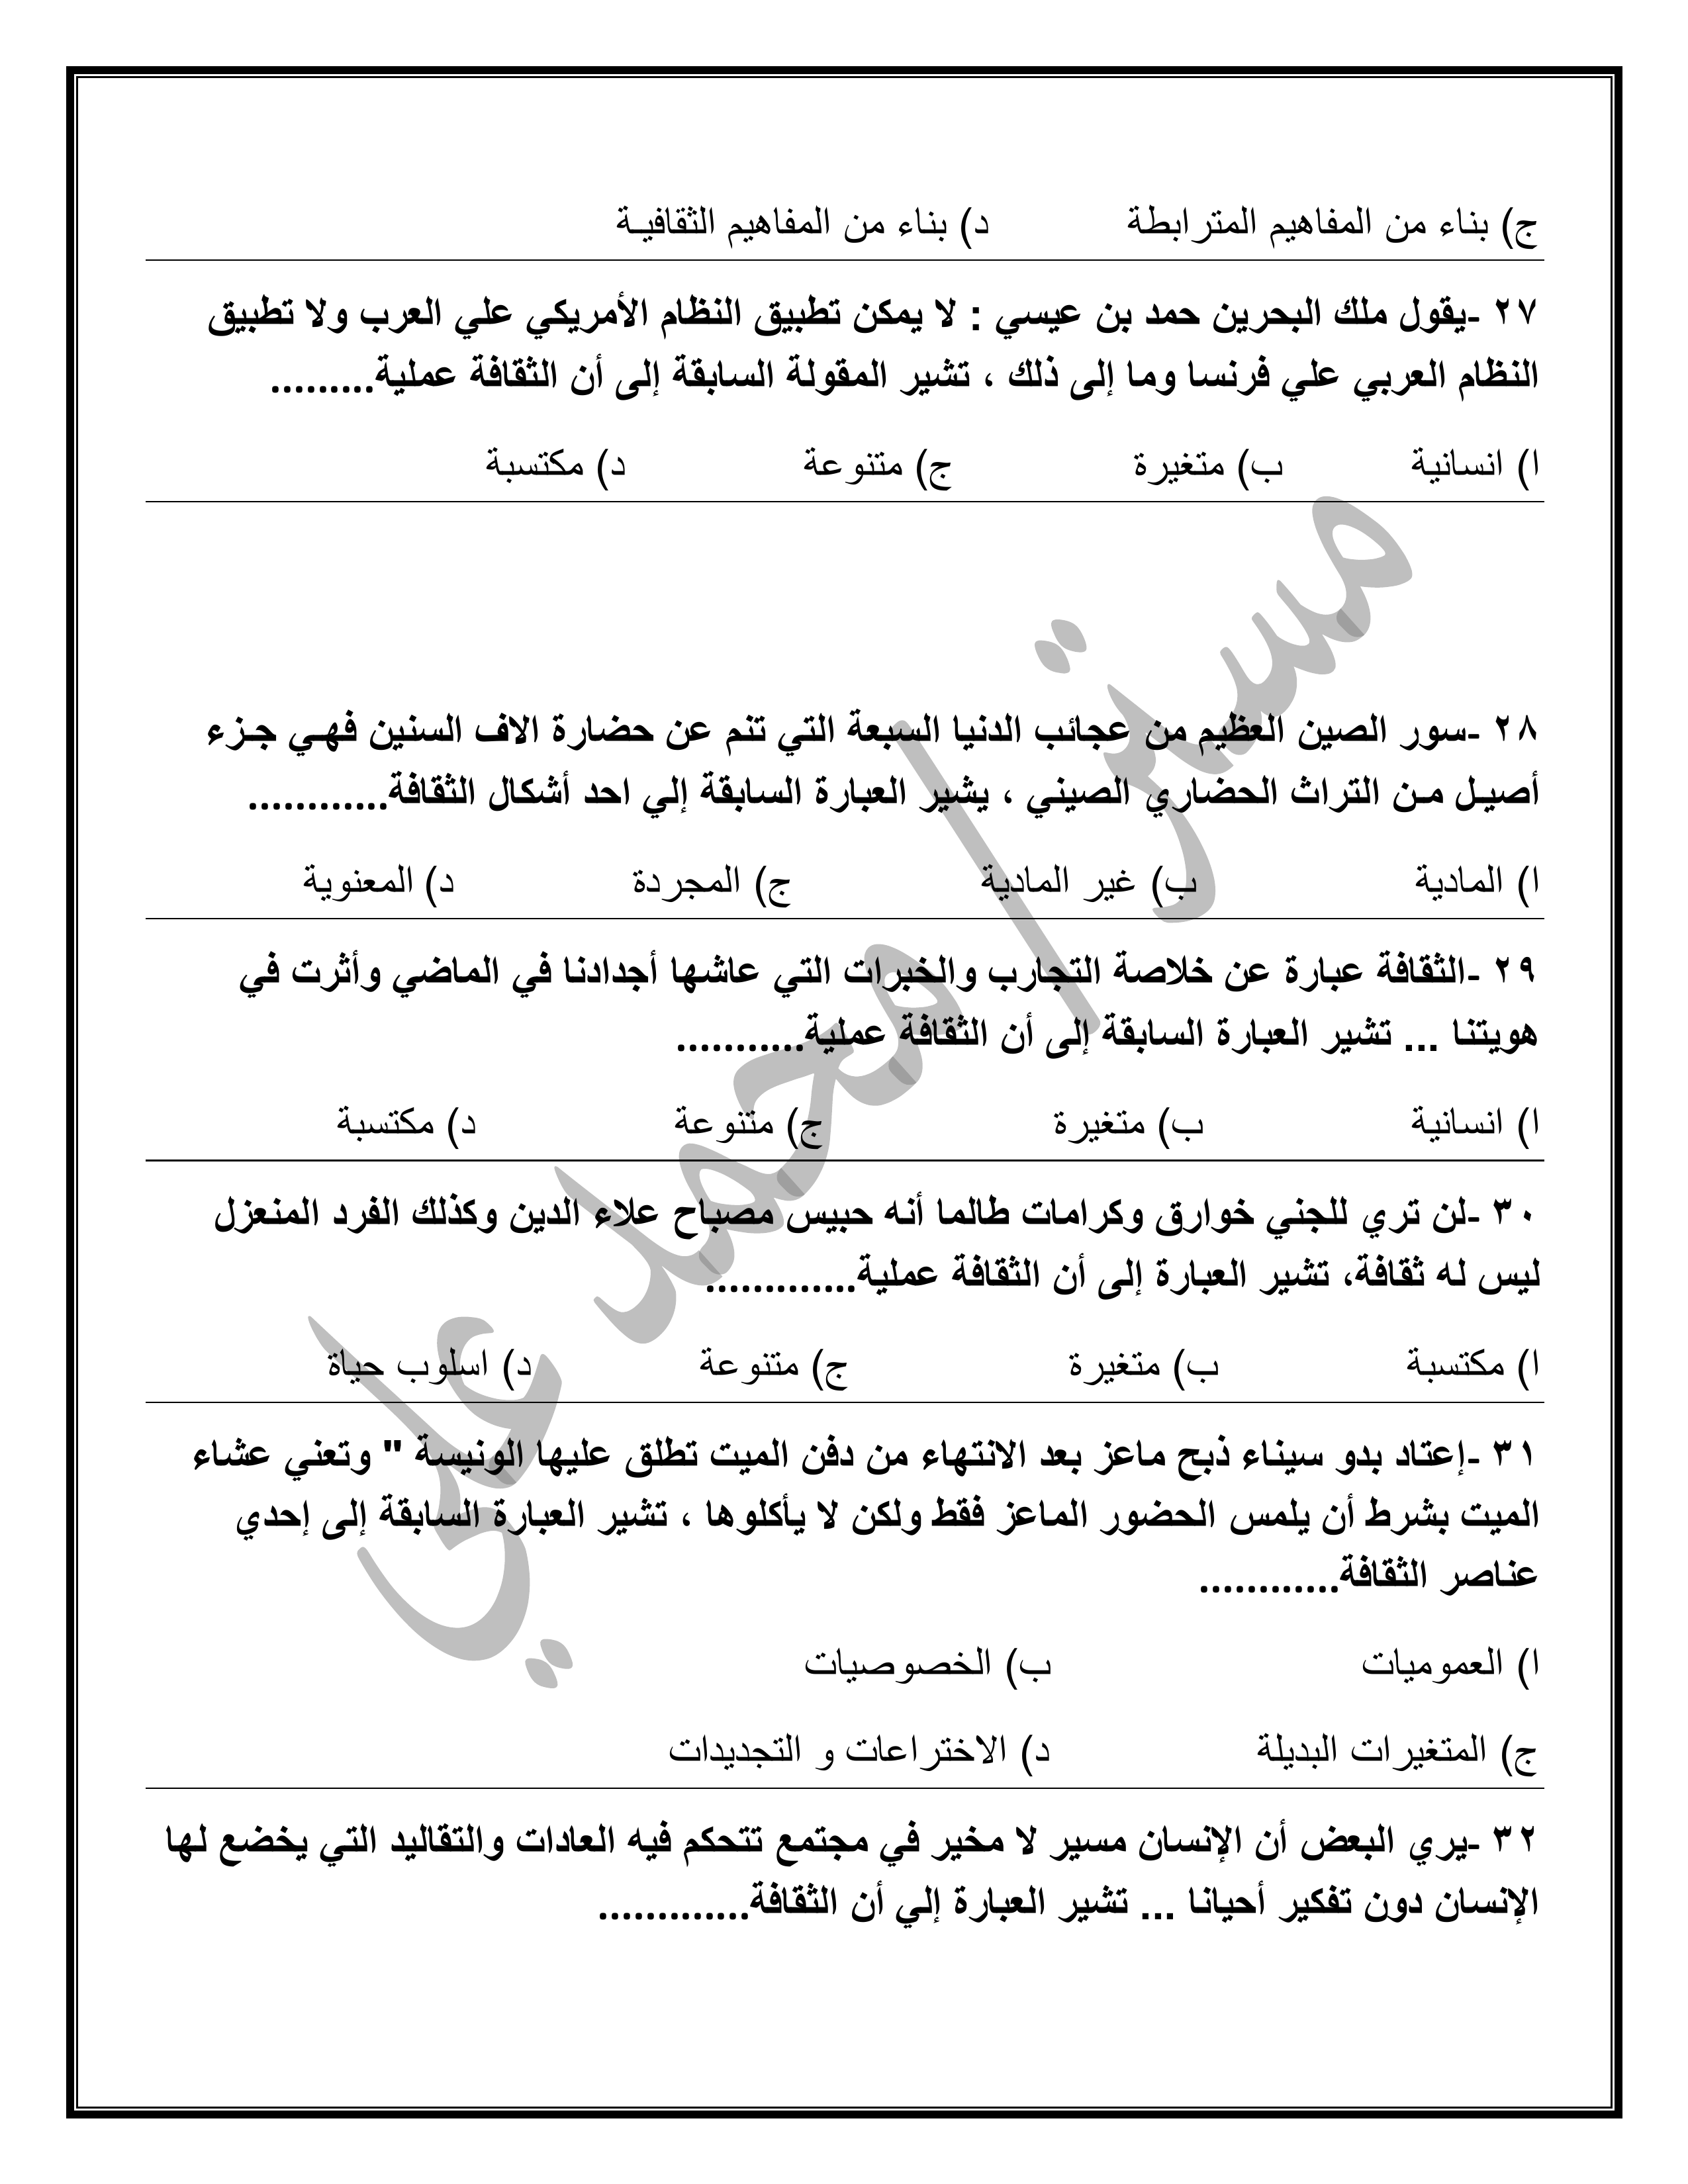 ج) بناء من المفاهيم المترابطة د) بناء من المفاهيم الثقافيـة
٢٧ -يقول ملك البحرين حمد بن عيسي : لا يمكن تطبيق النظام الأمريكي علي العرب ولا تطبيق
النظام العربي علي فرنسا وما إلى ذلك ، تشير المقولة السابقة إلى أن الثقافة عملية.........
ا) انسانية ب) متغيرة ج) متنوعة د) مكتسبة
٢٨ -سور الصين العظيم من عجائب الدنيا السبعة التي تنم عن حضارة الاف السنين فهـي جـزء
أصيـل مـن التراث الحضاري الصيني ، يشير العبارة السابقة إلي احد أشكال الثقافة............
ا) المادية ب) غير المادية ج) المجردة د) المعنوية
٢٩ -الثقافة عبارة عن خلاصة التجارب والخبرات التي عاشها أجدادنا في الماضي وأثرت في
هويتنا ... تشير العبارة السابقة إلى أن الثقافة عملية...........
ا) انسانية ب) متغيرة ج) متنوعة د) مكتسبة
٣٠ -لن تري للجني خوارق وكرامات طالما أنه حبيس مصباح علاء الدين وكذلك الفرد المنعزل
ليس له ثقافة، تشير العبارة إلى أن الثقافة عملية.............
ا) مكتسبة ب) متغيرة ج) متنوعة د) اسلوب حياة
٣١ -إعتاد بدو سيناء ذبح ماعز بعد الانتهاء من دفن الميت تطلق عليها الونيسة " وتعني عشاء
الميت بشرط أن يلمس الحضور الماعز فقط ولكن لا يأكلوها ، تشير العبارة السابقة إلى إحدي
عناصر الثقافة............
ا) العموميات ب) الخصوصيات
ج) المتغيرات البديلة د) الاختراعات و التجديدات
٣٢ -يري البعض أن الإنسان مسير لا مخير في مجتمع تتحكم فيه العادات والتقاليد التي يخضع لها
الإنسان دون تفكير أحيانا ... تشير العبارة إلي أن الثقافة.............
مستر/ محمد علي